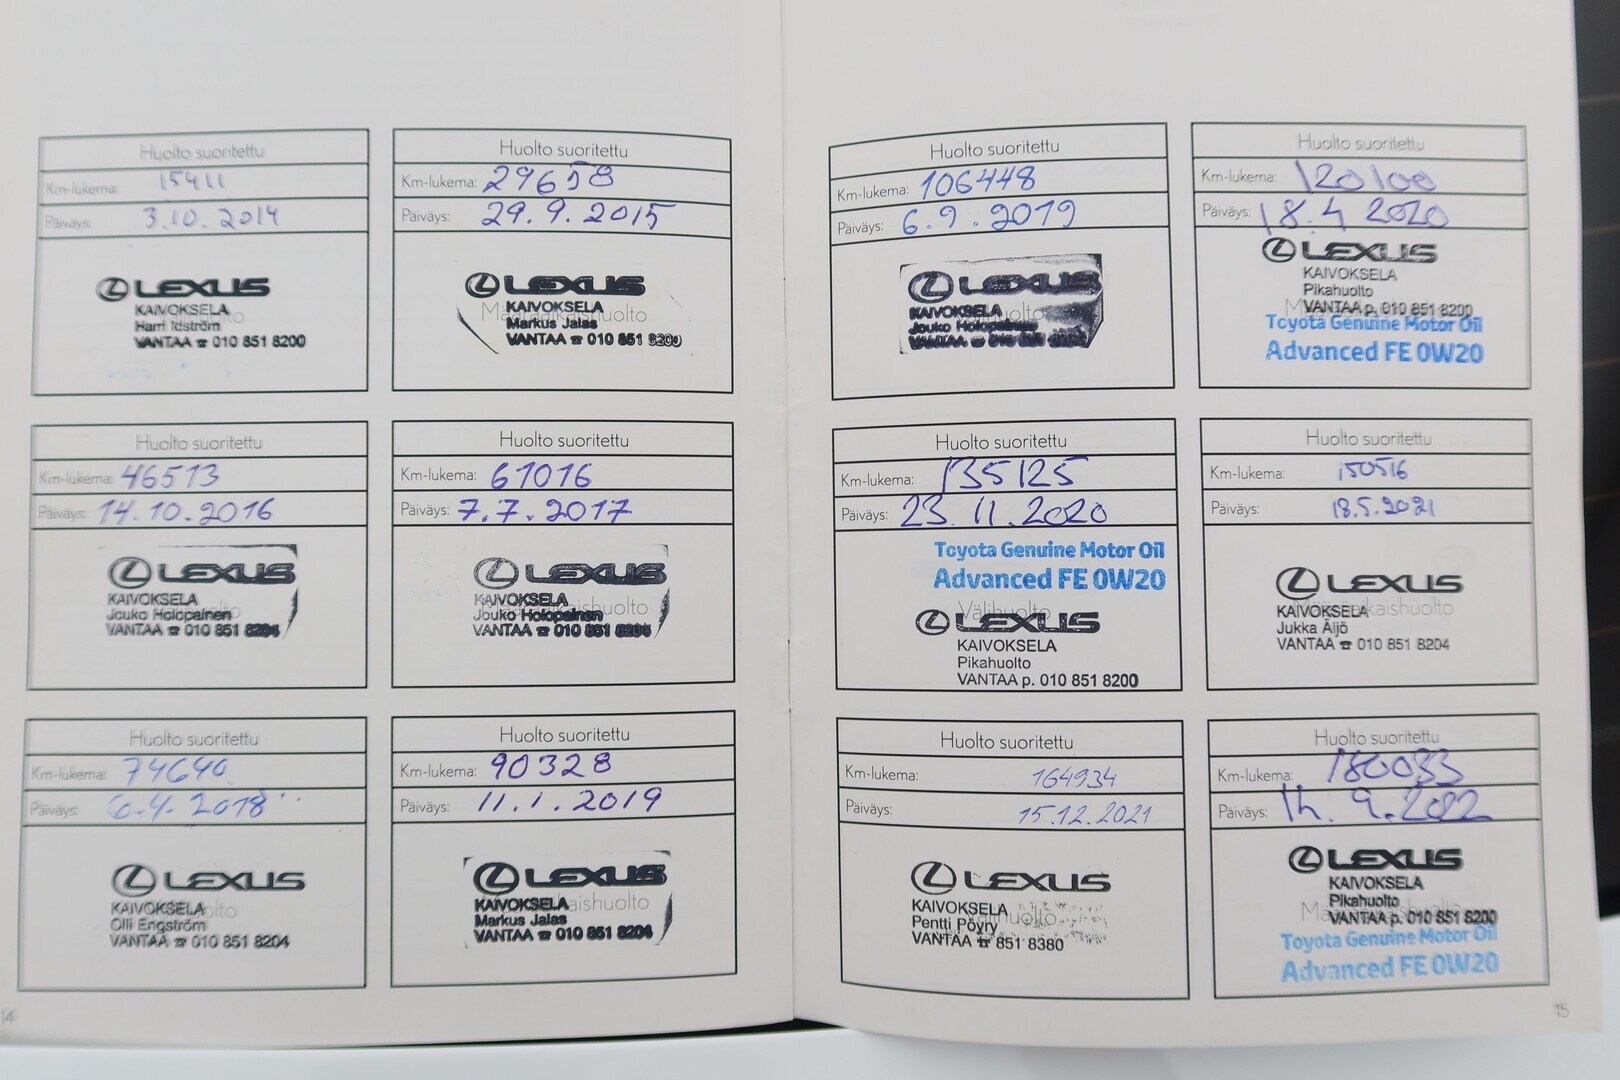 Huolto suoritettu
Km-lukema: 15411
Päiväys: 3.10.2014
LEXUS
KAIVOKSELA
Harri Idström
VANTAA ☎ 010 851 8200
Huolto suoritettu
Km-lukema: 29658
Päiväys: 29.9.2015
LEXUS
KAIVOKSELA
Määräaikaishuolto
Markus Jalas
VANTAA ☎ 010 851 8200
Huolto suoritettu
Km-lukema: 46513
Päiväys: 14.10.2016
LEXUS
KAIVOKSELA
Jouko Holopainen
VANTAA ☎ 010 851 8204
Huolto suoritettu
Km-lukema: 61016
Päiväys: 7.7.2017
LEXUS
KAIVOKSELA
Määräaikaishuolto
Jouko Holopainen
VANTAA ☎ 010 851 8204
Huolto suoritettu
Km-lukema: 74640
Päiväys: 6.4.2018
LEXUS
KAIVOKSELA
Olli Engström
VANTAA ☎ 010 851 8204
Huolto suoritettu
Km-lukema: 90328
Päiväys: 11.1.2019
LEXUS
KAIVOKSELA
Määräaikaishuolto
Markus Jalas
VANTAA ☎ 010 851 8204
14
Huolto suoritettu
Km-lukema: 106448
Päiväys: 6.9.2019
LEXUS
KAIVOKSELA
Jouko Holopainen
VANTAA ☎ 010 851
Huolto suoritettu
Km-lukema: 120100
Päiväys: 18.4 2020
LEXUS
KAIVOKSELA
Pikahuolto
VANTAA p. 010 851 8200
Toyota Genuine Motor Oil
Advanced FE 0W20
Huolto suoritettu
Km-lukema: 135125
Päiväys: 23.11.2020
Toyota Genuine Motor Oil
Advanced FE 0W20
Välihuolto
LEXUS
KAIVOKSELA
Pikahuolto
VANTAA p. 010 851 8200
Huolto suoritettu
Km-lukema: 150516
Päiväys: 18.5.2021
LEXUS
KAIVOKSELA
Määräaikaishuolto
Jukka Äijö
VANTAA ☎ 010 851 8204
Huolto suoritettu
Km-lukema: 164934
Päiväys: 15.12.2021
LEXUS
KAIVOKSELA
Välihuolto
Pentti Pöyry
VANTAA ☎ 851 8380
Huolto suoritettu
Km-lukema: 180033
Päiväys: 14.9.2022
LEXUS
KAIVOKSELA
Pikahuolto
VANTAA p. 010 851 8200
Toyota Genuine Motor Oil
Advanced FE 0W20
15